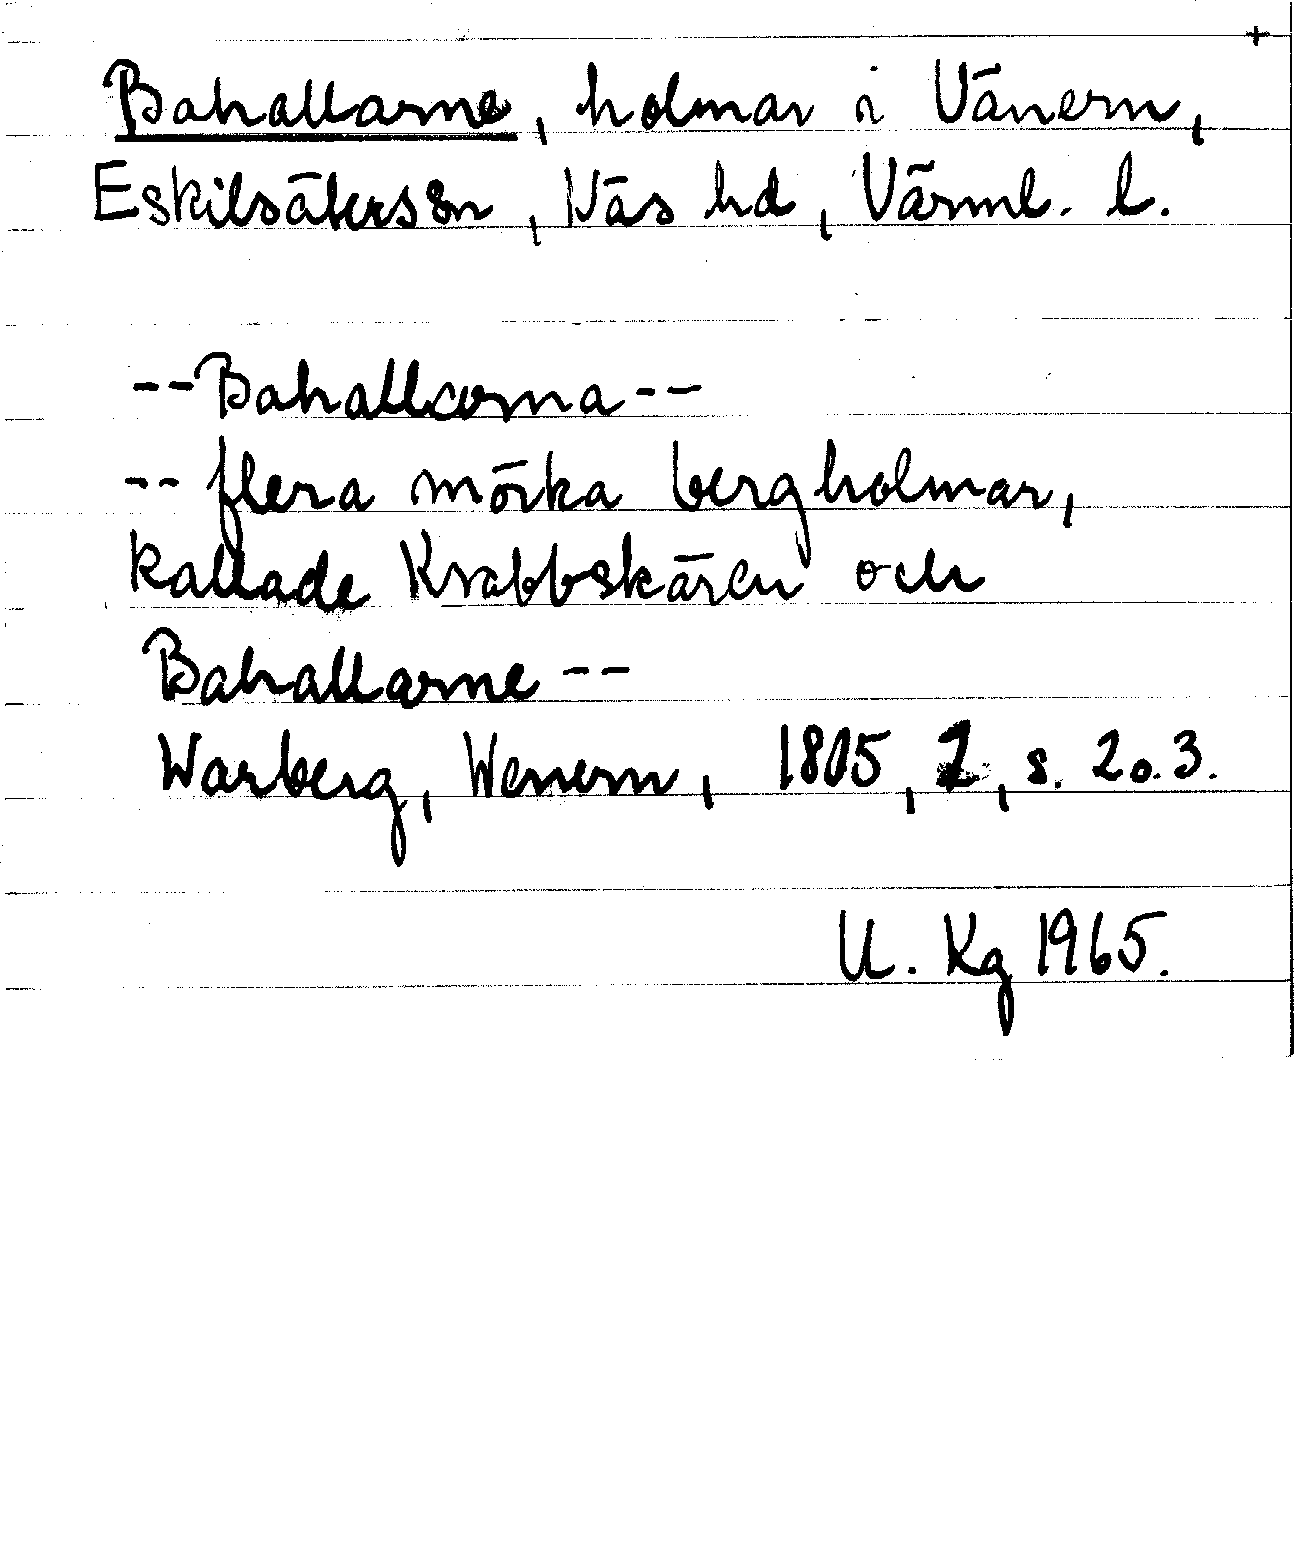 +
Bahallarne, holmar i Vänern,
Eskilsäters sn, Näs hd, Värml. l.
--Bahallarna--
-- flera mörka bergholmar,
kallade Krabbskären och
Bahallarne --
Warberg, Wenern, 1805, 1, s. 2 o. 3.
U. Kg 1965.